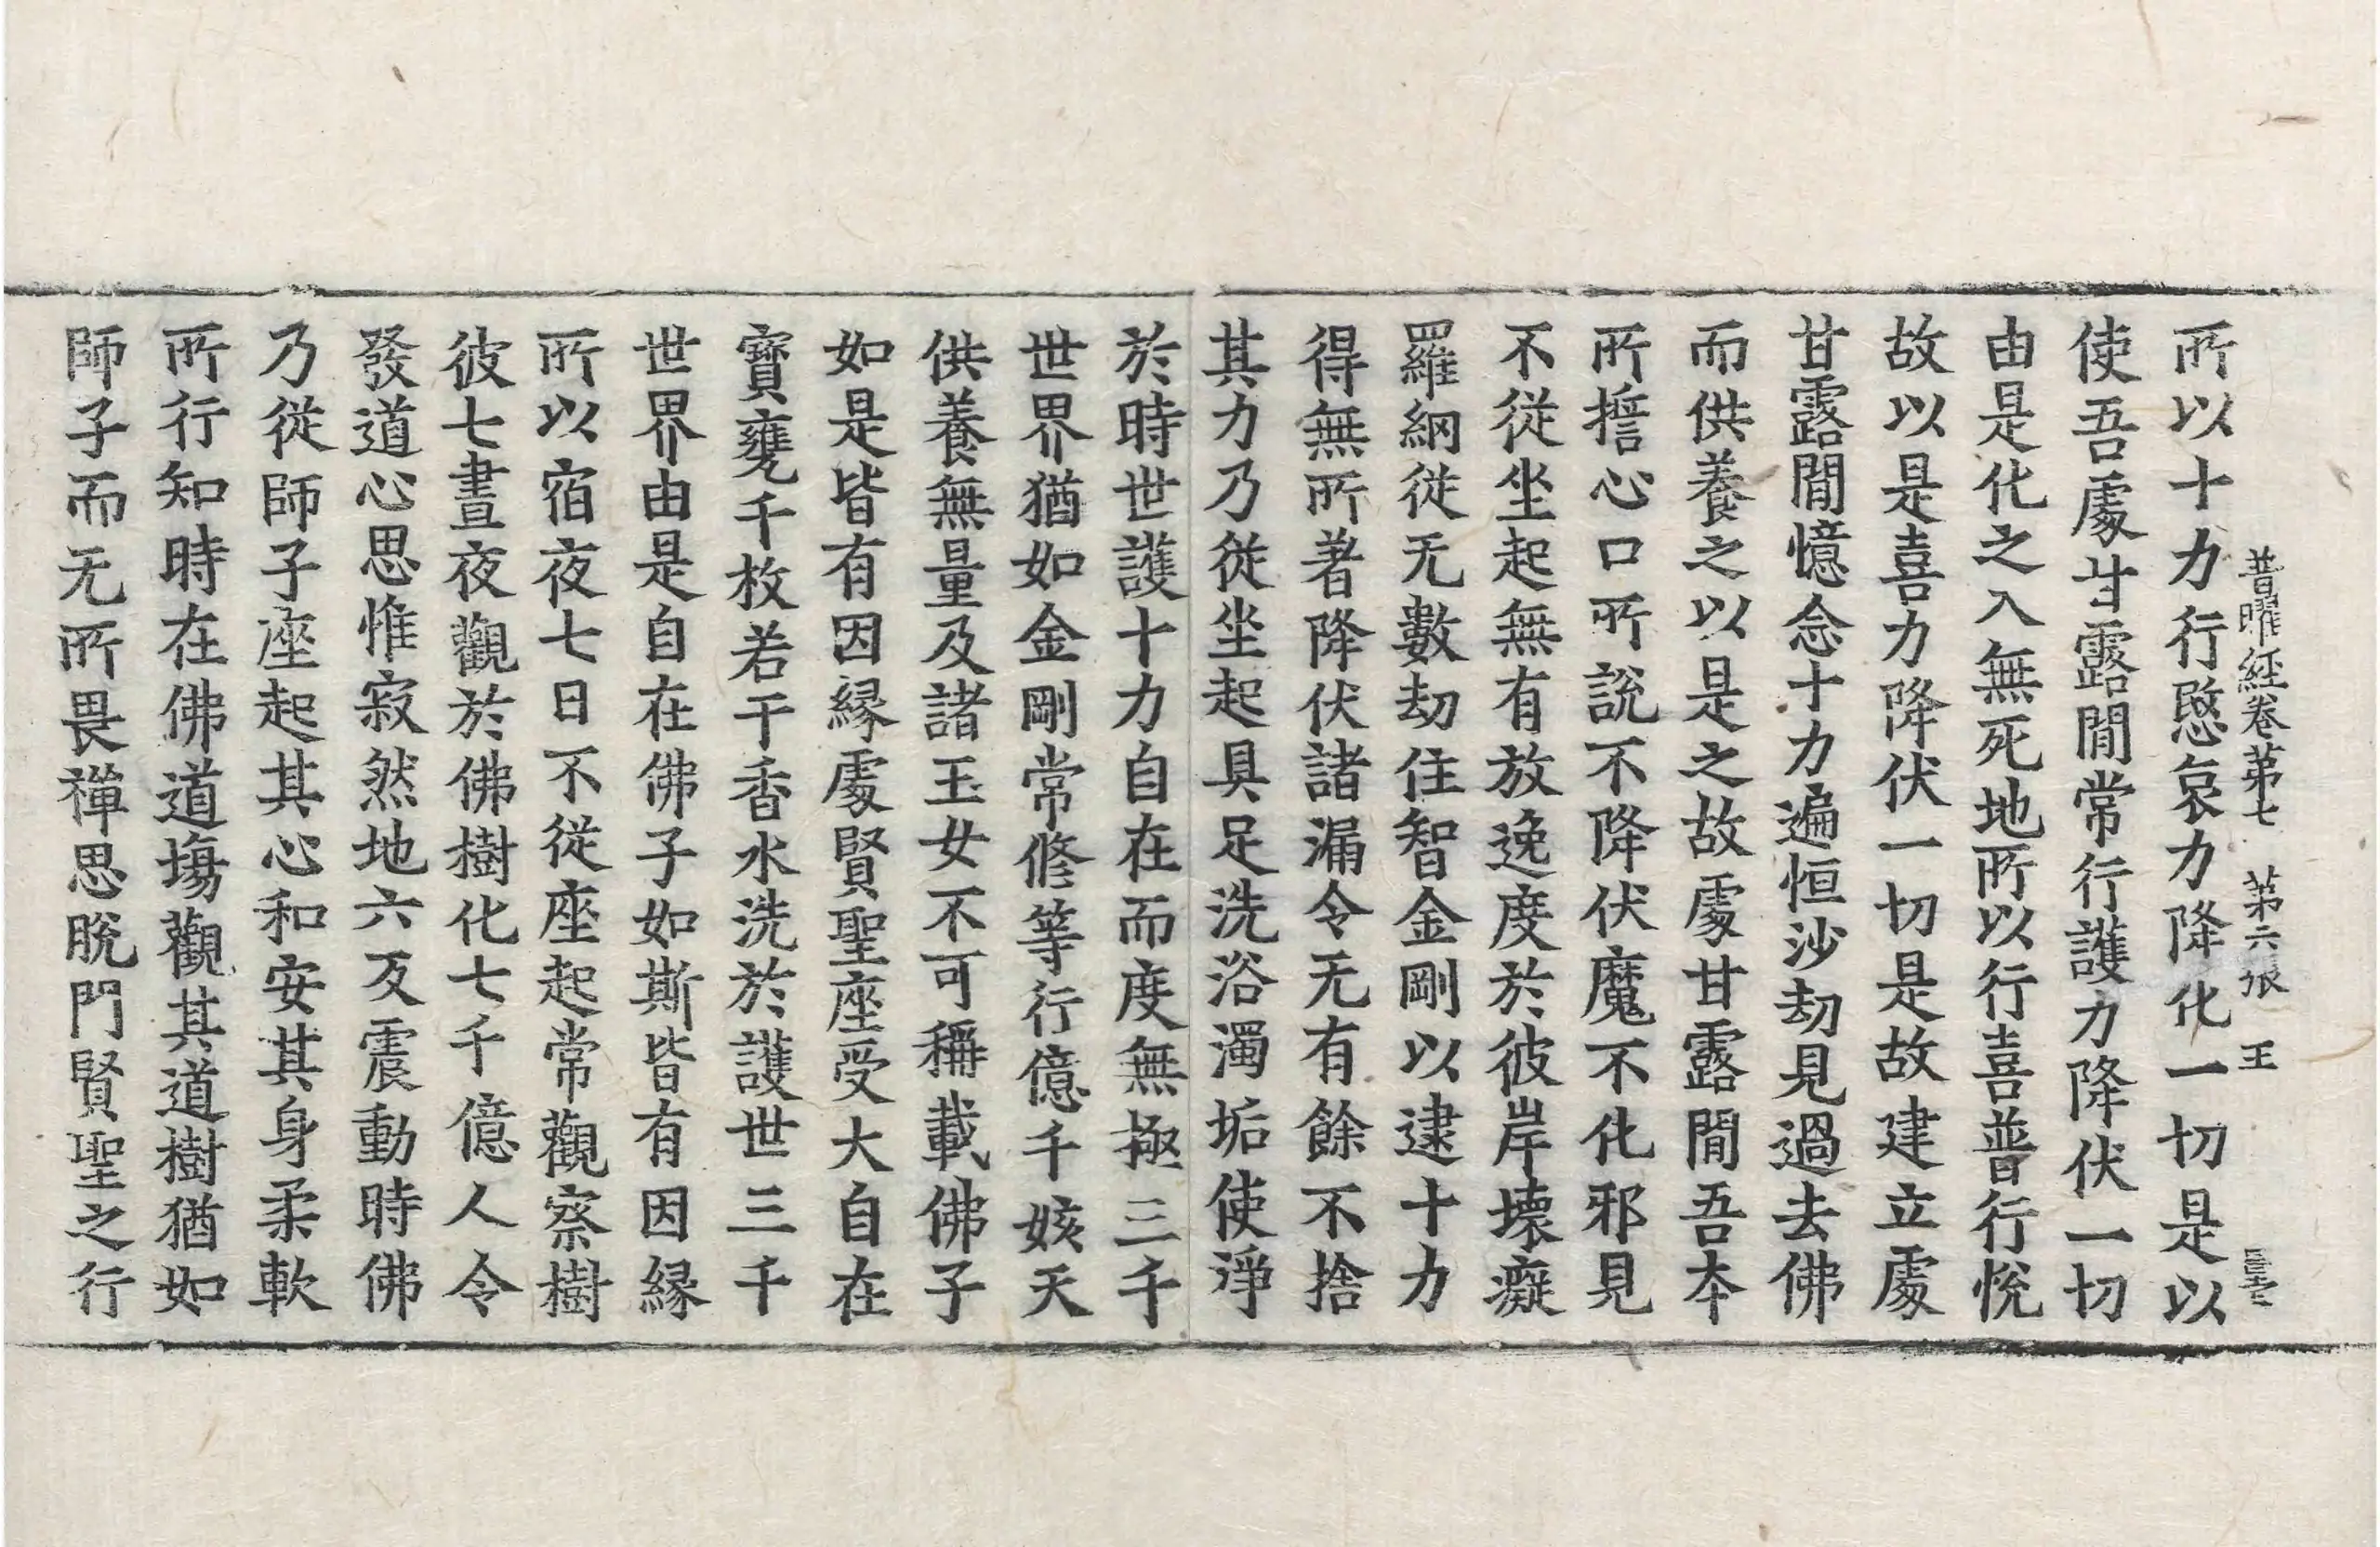 普曜經卷第七 第六張 王
所以十力行愍哀力降化一切是以
使吾處甘露閒常行護力降伏一切
由是化之入無死地所以行喜普行悅
故以是喜力降伏一切是故建立處
甘露閒憶念十力遍恒沙劫見過去佛
而供養之以是之故處甘露閒吾本
所誓心口所說不降伏魔不化邪見
不從坐起無有放逸度於彼岸壞癡
羅網從无數劫住智金剛以逮十力
得無所著降伏諸漏令无有餘不捨
其力乃從坐起具足洗浴濁垢使淨
於時世護十力自在而度無極三千
世界猶如金剛常修等行億千姟天
供養無量及諸玉女不可稱載佛子
如是皆有因緣處賢聖座受大自在
寶甕千枚若干香水洗於護世三千
世界由是自在佛子如斯皆有因緣
所以宿夜七日不從座起常觀察樹
彼七晝夜觀於佛樹化七千億人令
發道心思惟寂然地六反震動時佛
乃從師子座起其心和安其身柔軟
所行知時在佛道塲觀其道樹猶如
師子而无所畏禪思脫門賢聖之行